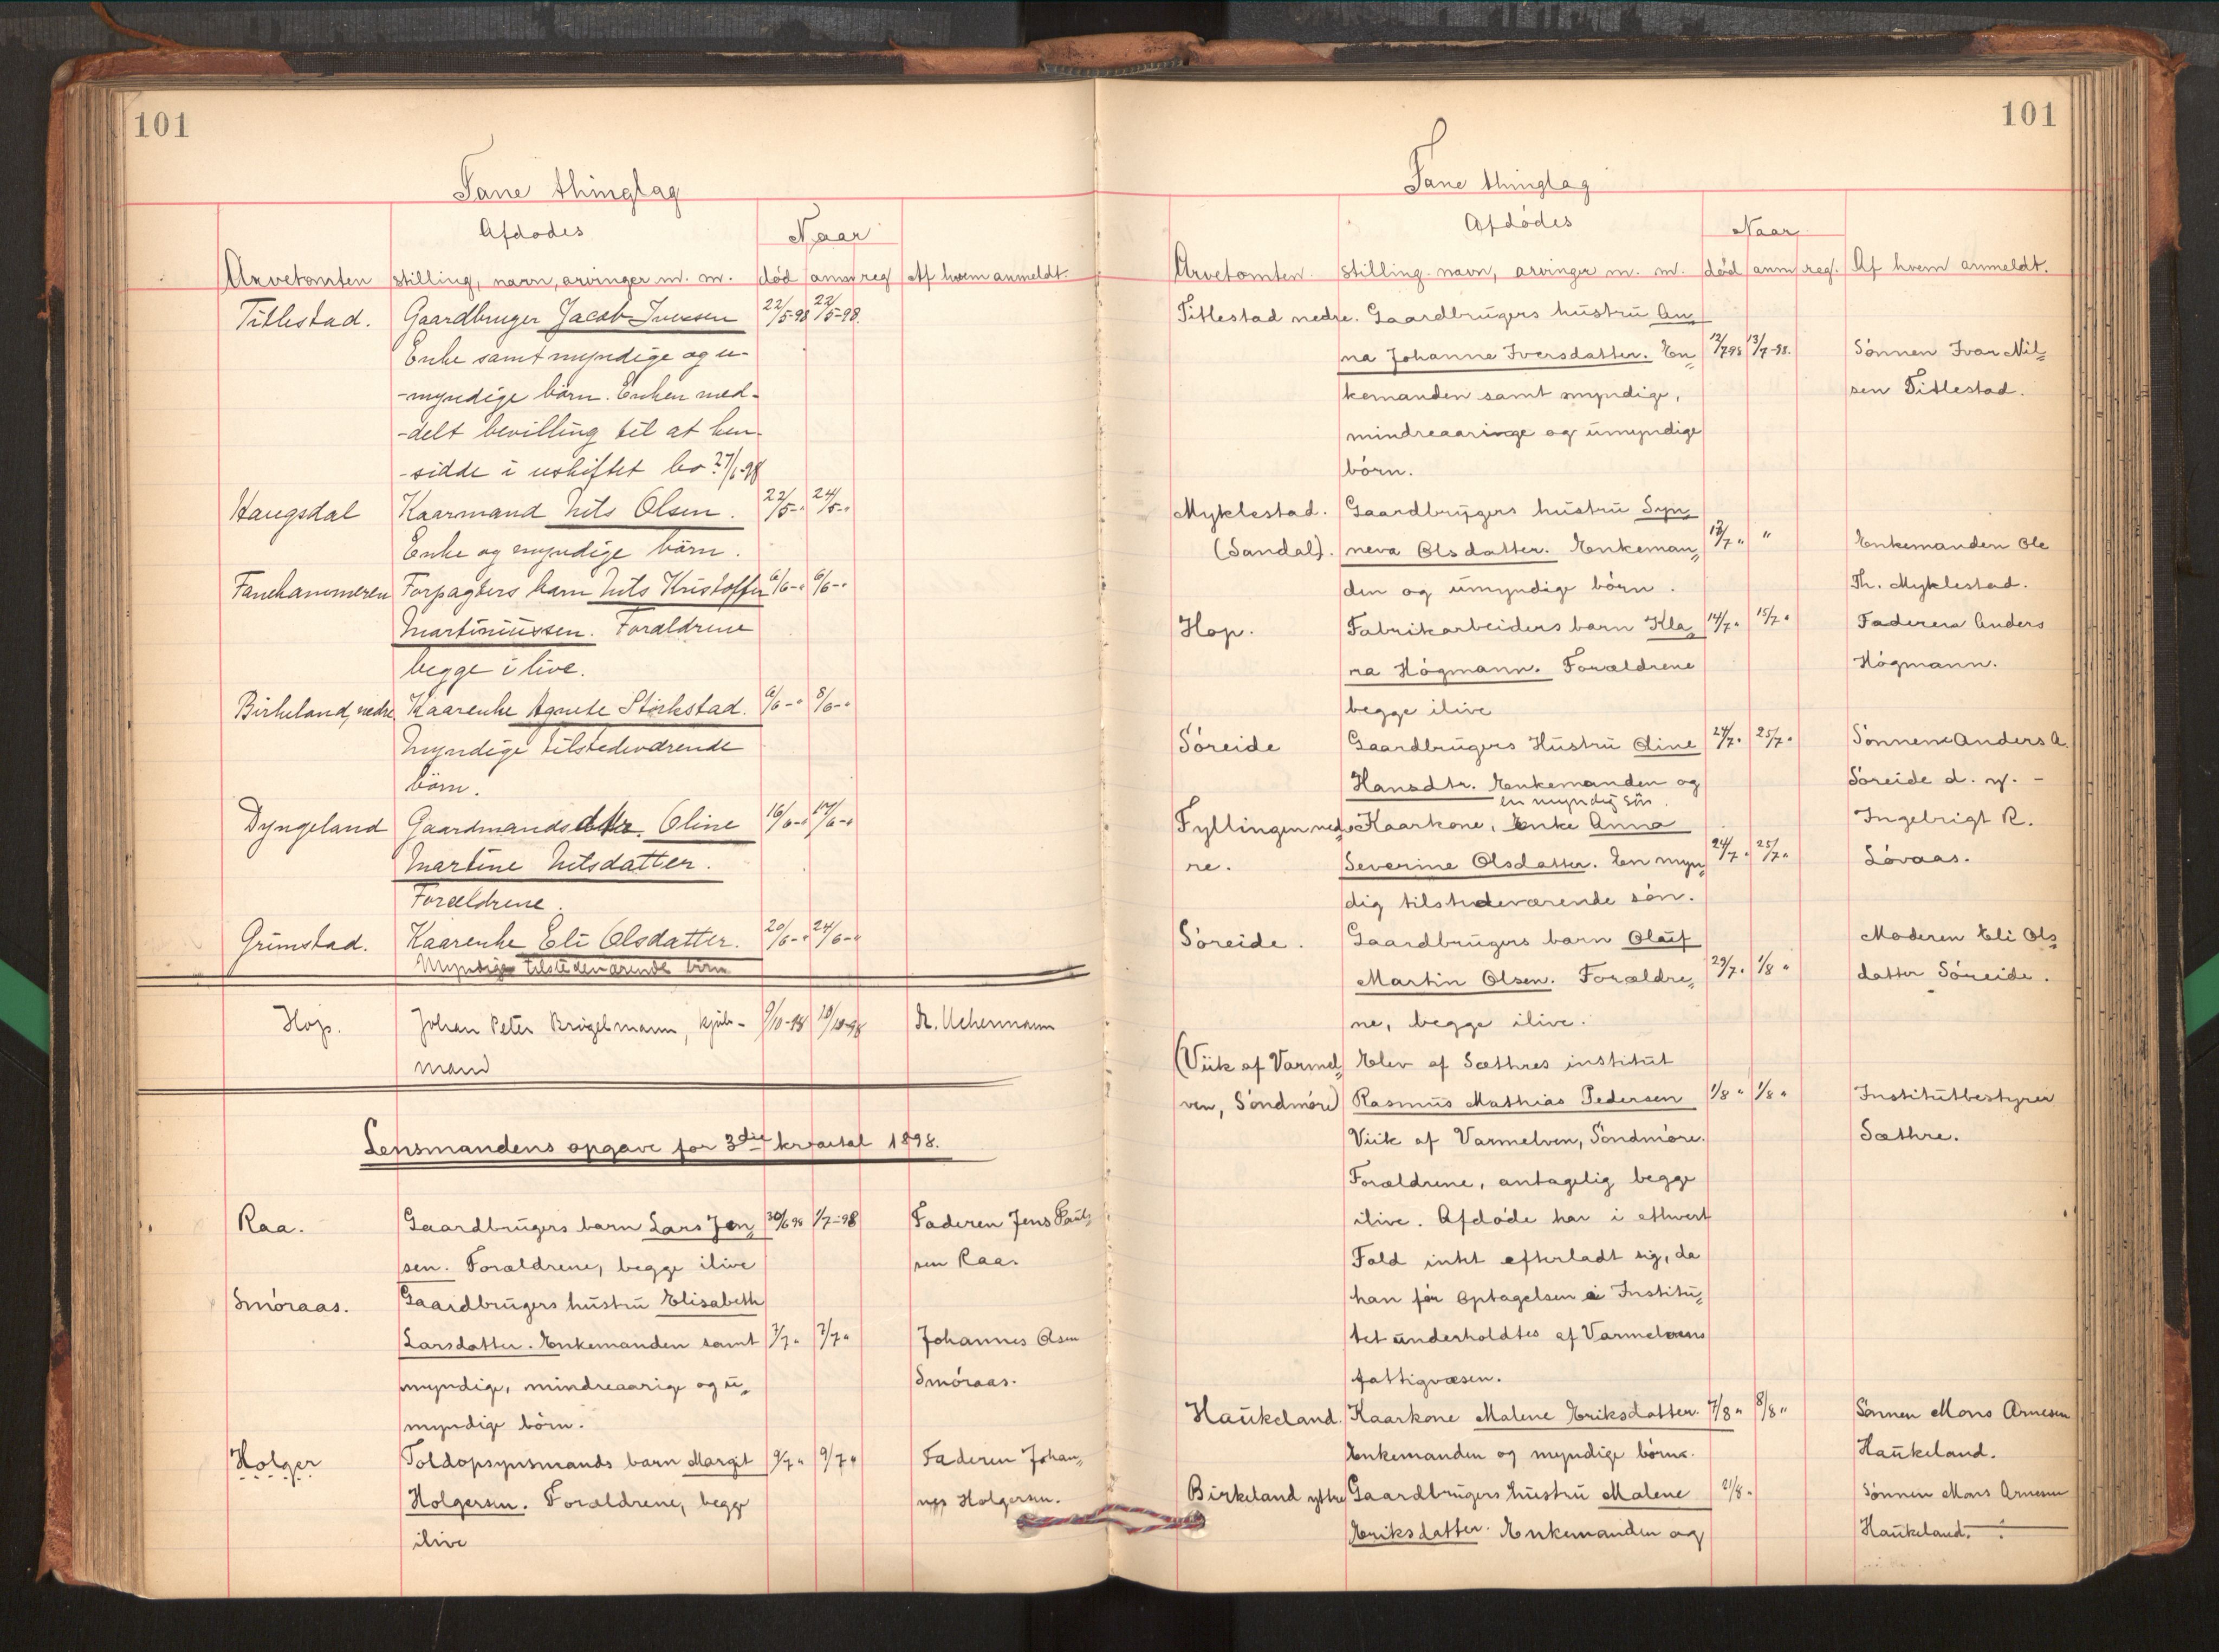 101
Fane thinglag
Afdødes
Naar
Arvetomten stilling, navn, arvinger m. m. død anm reg Af hvem anmeldt.
Titlestad. Gaardbruger Jacob Iversen 22/5-98 22/5-98.
Enke samt myndige og u-
-myndige børn. Enken med-
-delt bevilling til at hen-
-sidde i uskiftet bo 27/6-98
Haugsdal Kaarmand Nils Olsen. 22/5-" 24/5-"
Enke og myndige børn.
Fanehammeren Forpagters barn Nils Kristoffer 6/6-" 6/6-"
Martiniussen. Forældrene
begge i live.
Birkeland, nedre Kaarenke Agnete Storkstad. 6/6-" 8/6-"
Myndige tilstedeværende
børn.
Dyngeland Gaardmandsdttr. Oline 16/6-" 17/6-"
Martine Nilsdatter.
Forældrene.
Grimstad. Kaarenke Eli Olsdatter. 20/6-" 24/6-"
Myndige tilstedeværende børn
Hop. Johan Peter Brögelmann, kjøb- 9/10-98 10/10-98 R. Uchermann
mand
Lensmandens opgave for 3die kvartal 1898.
Raa. Gaardbrugers barn Lars Jen- 30/6 98 1/7-98 Faderen Jens Paul-
sen. Forældrene, begge ilive sen Raa.
Smøraas. Gaardbrugers hustru Elisabeth
Larsdatter. Enkemanden samt 7/7 " 7/7 " Johannes Olsen
myndige, mindreaarige og u- Smøraas.
myndige børn.
Holger Toldopsynsmands barn Margit 9/7 " 9/7 " Faderen Johan-
Holgersen. Forældrene, begge nes Holgersen.
ilive
101
Fane thinglag
Afdødes
Naar
Arvetomten. stilling navn, arvinger m. m. død anm reg. Af hvem anmeldt.
Titlestad nedre. Gaardbrugers hustru An-
na Johanne Iversdatter. En- 12/7 98 13/7-98. Sønnen Ivar Nil-
kemanden samt myndige, sen Titlestad.
mindreaaringe og umyndige
børn.
Myklestad. Gaardbrugers hustru Syn-
(Sandal). neva Olsdatter. Enkeman- 13/7 " " Enkemanden Ole
den og umyndige børn. Th. Myklestad.
Hop. Fabrikarbeiders barn Kla- 14/7 " 15/7 " Faderen Anders
ra Högmann. Forældrene Högmann.
begge ilive
Søreide Gaardbrugers Hustru Oline 24/7 " 25/7 " Sønnen Anders A.
Hansdtr. Enkemanden og Søreide d. y. -
en myndig søn.
Fyllingen ned- Kaarkone, Enke Anna Ingebrigt R.
re. Severine Olsdatter. En myn- 24/7 " 25/7 " Løvaas.
dig tilstedeværende søn.
Søreide. Gaardbrugers barn Olaif Moderen Eli Ols-
Martin Olsen. Forældre- 29/7 " 1/8 " datter Søreide.
ne, begge ilive.
(Viik af Varmel- Elev af Sæthres institut
ven, Søndmøre) Rasmus Mathias Pedersen 1/8 " 1/8 " Institutbestyrer
Viik af Varmelven, Søndmøre. Sæthre.
Forældrene, antagelig begge
ilive. Afdøde har i ethvert
Fald intet efterladt sig, da
han før Optagelsen i Institu-
tet underholdtes af Varmelvens
fattigvæsen.
Haukeland. Kaarkone Malene Eriksdatter. 7/8 " 8/8 " Sønnen Mons Arnesen
Enkemanden og myndige børn. Haukeland.
Birkeland ytre Gaardbrugers hustru Malene 21/8 " Sønnen Mons Arnesen
Eriksdatter. Enkemanden og Haukeland.